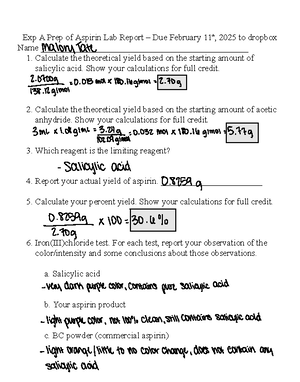 Exp A Prep of Aspirin Lab Report – Due February 11th, 2025 to dropbox
Name Malory Tate
1. Calculate the theoretical yield based on the starting amount of
salicylic acid. Show your calculations for full credit.
2.0700g
138.12g/mol = 0.015 mol x 180.16g/mol = 2.70g
2. Calculate the theoretical yield based on the starting amount of acetic
anhydride. Show your calculations for full credit.
3mL x 1.08g/mL = 3.24g
102.09g/mol = 0.032 mol x 180.16g/mol = 5.77g
3. Which reagent is the limiting reagent?
- Salicylic acid
4. Report your actual yield of aspirin. 0.8259g
5. Calculate your percent yield. Show your calculations for full credit.
0.8259g
2.70g x 100 = 30.6%
6. Iron(III)chloride test. For each test, report your observation of the
color/intensity and some conclusions about those observations.
a. Salicylic acid
- very dark purple color, contains pure salicylic acid
b. Your aspirin product
- light purple color, not 100% clean, still contains salicylic acid
c. BC powder (commercial aspirin)
- light orange/little to no color change, does not contain any
salicylic acid